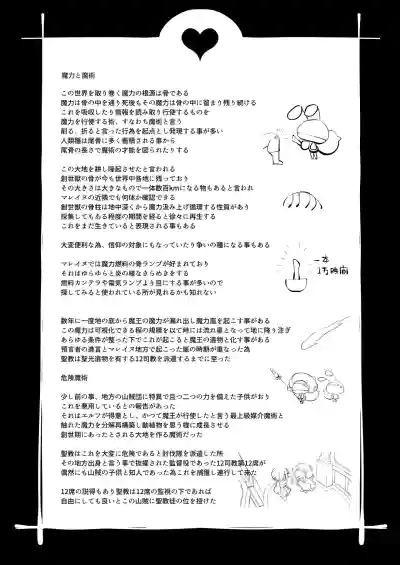 魔力と魔術
この世界を取り巻く魔力の根源は骨である
魔力は骨の中を通り死後もその魔力は骨の中に留まり残り続ける
これを吸収したり情報を読み取り行使するものを
魔力を行使する術、すなわち魔術と言う
削る、折ると言った行為を起点とし発現する事が多い
人類種は尾骨に多く蓄積される事から
尾骨の長さで魔術の才能を図られたりする
この大地を耕し隆起させたと言われる
創世獣の骨が今も世界中各地に残っており
その大きさは大きなもので一体数百kmになる物もあると言われ
マレイヌの近隣でも何体か確認できる
創世獣の骨柱は地中深くから魔力汲み上げ循環する性質があり
採集してもある程度の期間を経ると徐々に再生する
これをまだ生きていると表現される事もある
大変便利な為、信仰の対象にもなっていたり争いの種になる事もある
マレイヌでは魔力燃料の骨ランプが好まれており
それはゆらゆらと炎の様なきらめきをする
燃料カンテラや電気ランプより目にする事が多いので
探してみると使われている所が見れるかも知れない
一本
1万時間
数年に一度地の底から魔王の魔力が漏れ出し魔力嵐を起こす事がある
この魔力は可視化できる程の規模を以て時には流れ星となって地に降り注ぎ
あらゆる条件が整った下でこれが起こると魔王の遺物と化す事がある
預言者の遺言とマレイヌ地方で起こった嵐の時期が重なった為
聖教は聖光遺物を有する12司教を派遣するまでに至った
危険魔術
少し前の事、地方の山賊団に特異で且つ二つの力を備えた子供がおり
これを悪用しているとの報告があった
それはエルフが得意とし、かつて魔王が行使したと言う最上級媒介魔術と
触れた魔力を分解再構築し動植物を思う様に成長させる
創世期にあったとされる大地を作る魔術だった
聖教はこれを大変に危険であると討伐隊を派遣した所
その地方出身と言う事で抜擢された監督役であった12司教第12席が
偶然にも山賊の子供と知人であった為これを捕獲し連行して来た
12席の説得もあり聖教は12席の監視の下であれば
自由にしても良いとこの山賊に聖教徒の位を授けた